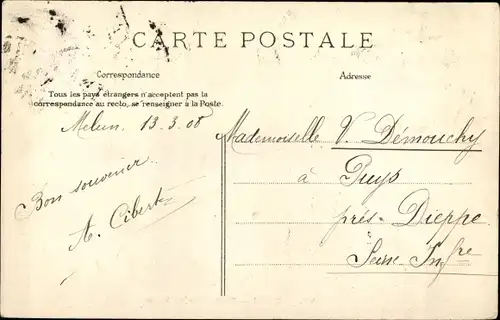 CARTE POSTALE
Correspondance
Tous les pays étrangers n'acceptent pas la
correspondance au recto, se renseigner à la Poste.
Melun. 13-3-08
Bon souvenir
A. Cibert
Adresse
Mademoiselle V. Démouchy
à Puys
près Dieppe
Seine Infre